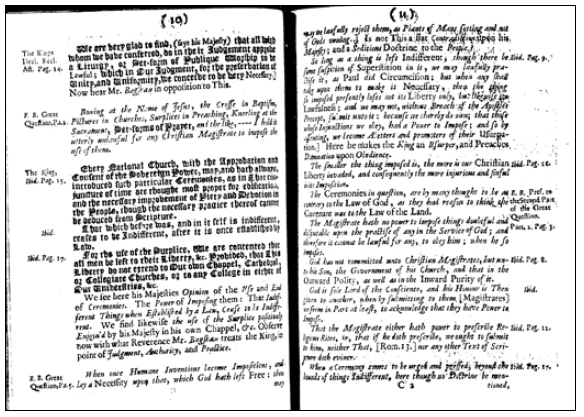 (10)
The Kings
Decl. Eccl.
Aff. Pag. 14.
We are very glad to find, (says his Majesty) that all with
whom we have conferred, do in their Judgement approve
a Liturgy, or Set-form of Publique Worship to be
Lawful; which in Our Judgment, for the preservation of
Unity, and Uniformity, we conceive to be very Necessary.]
Now hear Mr. Bagshaw in opposition to This.
E. B. Great
Question, Pa. 2.
Bowing at the Name of Jesus, the Crosse in Baptism,
Pictures in Churches, Surplices in Preaching, Kneeling at the
Sacrament, Set-forms of Prayer, and the like, ---- I hold it
utterly unlawful for any Christian Magistrate to impose the
use of them.
The King,
Ibid. Pag. 15.
Every National Church, with the Approbation and
Consent of the Sovereign Power, may, and hath always,
introduced such particular Ceremonies, as in that con-
juncture of time are thought most proper for edification,
and the necessary improvement of Piety and Devotion in
the People, though the necessary practice thereof cannot
be deduced from Scripture.
Ibid.
That which before was, and in it self is indifferent,
ceases to be Indifferent, after it is once established by
Law.
Ibid. Pag. 17.
For the use of the Surplice, We are contented that
all men be left to their Liberty, &c. Provided, that This
Liberty do not extend to Our own Chappel, Cathedral,
or Collegiate Churches, or to any College in either of
Our Universities, &c.
We see here his Majesties Opinion of the Use and End
of Ceremonies. The Power of Imposing them: That Indif-
ferent Things when Established by a Law, Cease to be Indif-
ferent. We find likewise the use of the Surplice positively
Enjoyn'd by his Majesty in his own Chappel, &c. Observe
now with what Reverence Mr. Bagshaw treats the King, in
point of Judgment, Authority, and Practice.
E. B. Great
Question, Pa. 5.
When once Humane Inventions become Impositions, and
lay a Necessity upon that, which God hath left Free: then
may
(11)
may we lawfully reject them, as Plants of Mans setting and not
of Gods owning.] Is not This a flat Contradiction upon his
Majesty; and a Seditious Doctrine to the People?
So long as a thing is left Indifferent, though there be
some suspicion of Superstition in it, we may lawfully pra-
ctise it, as Paul did Circumcision; but when any shall
take upon them to make it Necessary, then the thing
so imposed presently loses not its Liberty only, but likewise its
Lawfulness; and we may not, without Breach of the Apostles
Precept, submit unto it: because we thereby do own, that those
whose Injunctions we obey, had a Power to Impose; and so by
assenting, we become Abettors and promoters of their Usurpa-
tion.] Here he makes the King an Usurper, and Preaches
Damnation upon Obedience.
Ibid. Pag. 9.
The smaller the thing imposed is, the more is our Christian
Liberty invaded, and consequently the more injurious and sinful
is its Imposition.
The Ceremonies in question, are by many thought to be as
contrary to the Law of God, as they had reason to think, the
Covenant was to the Law of the Land.
E. B. Pref. to
the Second Part
of the Great
Question.
The Magistrate hath no power to impose things doubtful and
disputable upon the practise of any in the Service of God; and
therefore it cannot be lawful for any, to obey him; when he so
imposes.
God has not committed unto Christian Magistrates, but un-
to his Son, the Government of his Church, and that in the
Outward Polity, as well as in the Inward Purity of it.
God is the Lord of the Conscience, and his Honour is Then
given to another, when by submitting to them [Magistrates]
we seem in Part at least, to acknowledge that they have Power to
Impose.
That the Magistrate either hath power to prescribe Re-
ligious Rites, or, that if he doth prescribe, we ought to submit
to him, neither That, [Rom. 13.] nor any other Text of Scri-
pture doth evince.
Ibid. Pag. 12.
When a Ceremony comes to be urged and pressed, beyond the
bounds of things Indifferent, here though no Doctrine be men-
C 2
tioned,